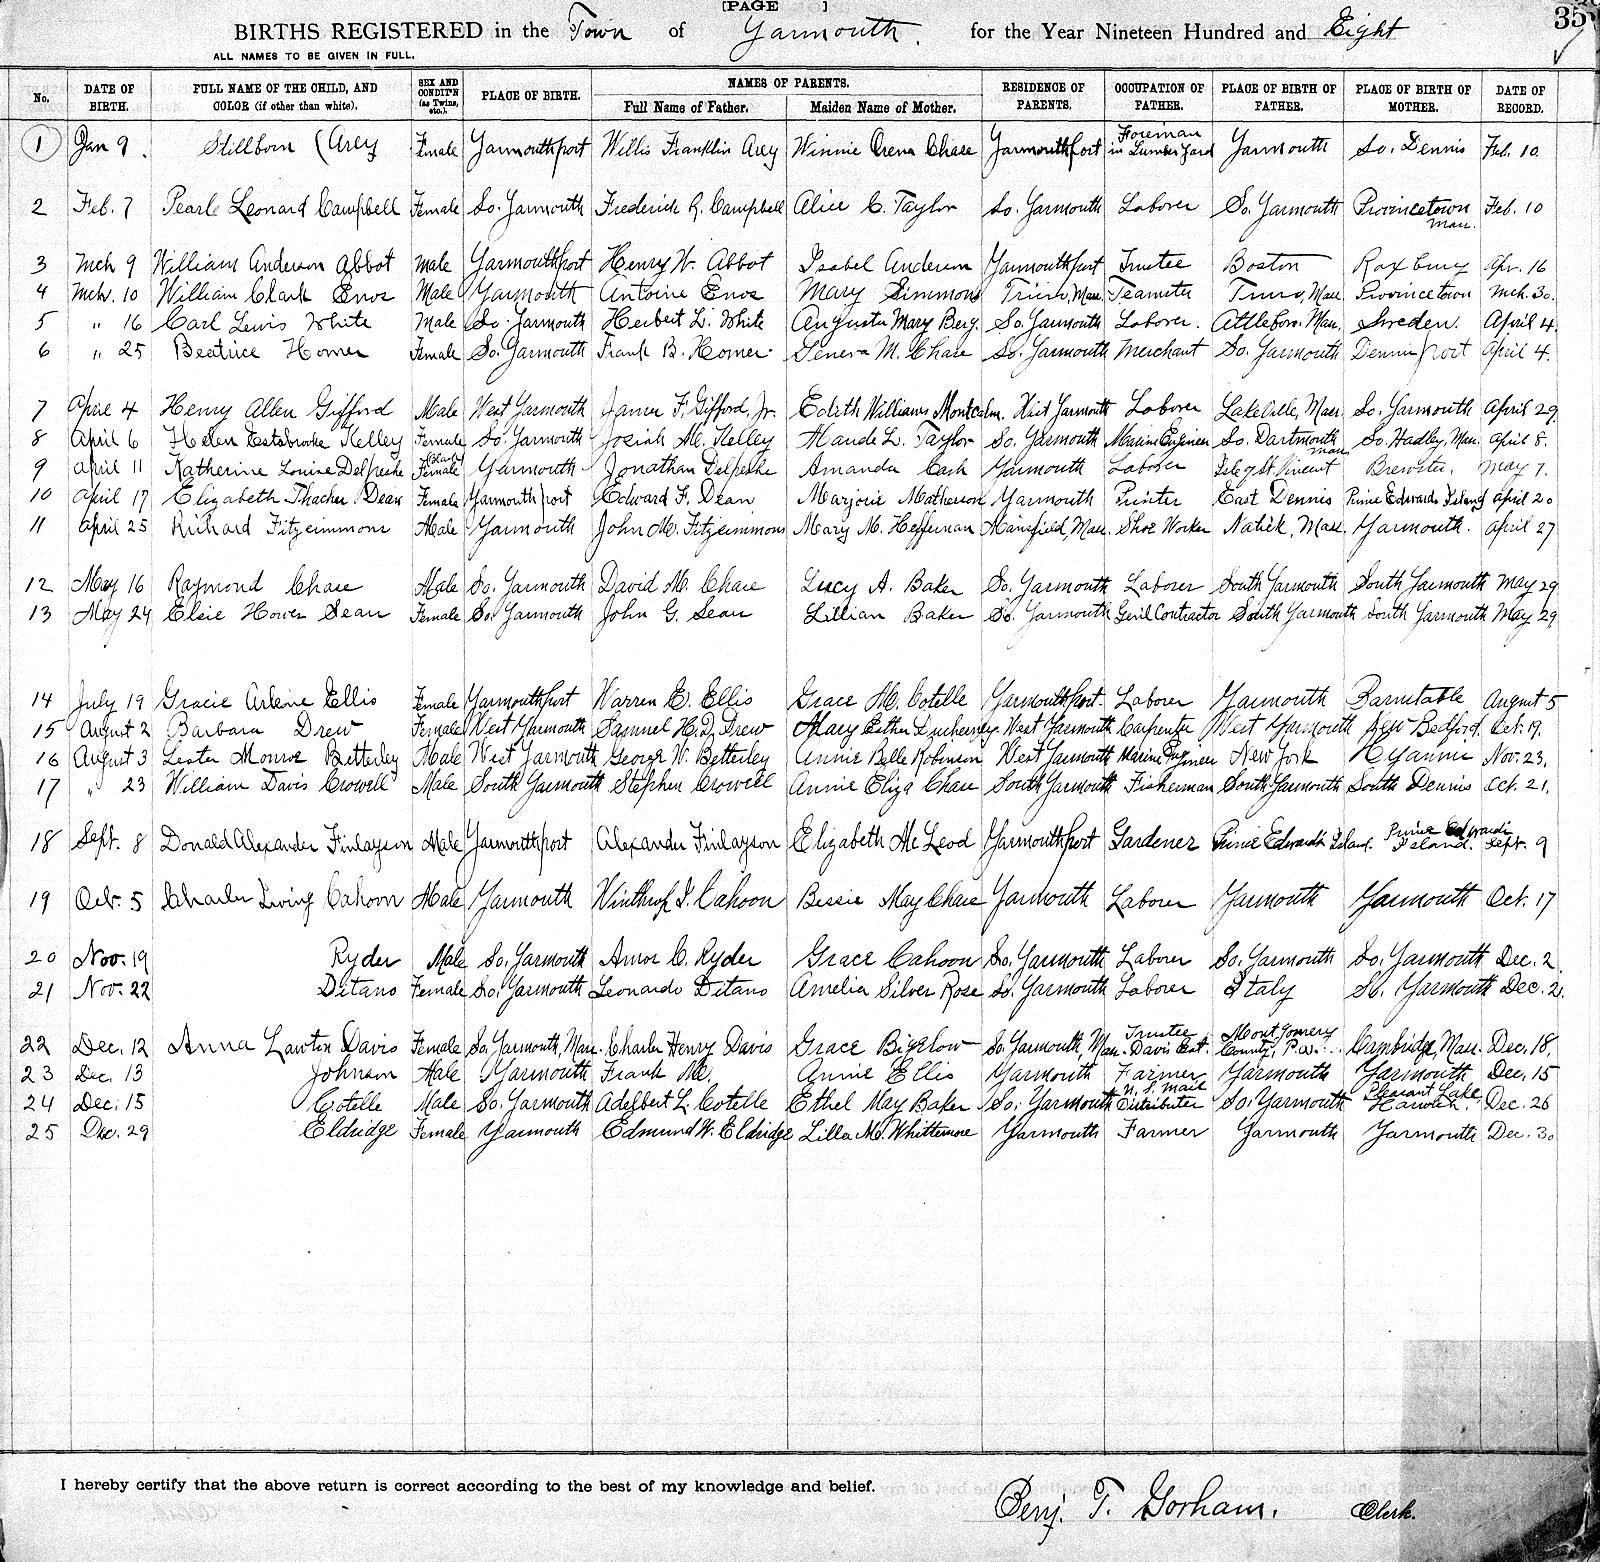 [PAGE ]
35
BIRTHS REGISTERED in the Town of Yarmouth. for the Year Nineteen Hundred and Eight
ALL NAMES TO BE GIVEN IN FULL.
No. DATE OF BIRTH. FULL NAME OF THE CHILD, AND COLOR (if other than white). SEX AND CONDIT'N (as Twins, etc.). PLACE OF BIRTH. NAMES OF PARENTS. Full Name of Father. Maiden Name of Mother. RESIDENCE OF PARENTS. OCCUPATION OF FATHER. PLACE OF BIRTH OF FATHER. PLACE OF BIRTH OF MOTHER. DATE OF RECORD.
1 Jan 9. Stillborn (Arey Female Yarmouthport Willis Franklin Arey Winnie Crena Chase Yarmouthport Foreman in Lumber Yard Yarmouth So. Dennis Feb. 10
2 Feb. 7 Pearle Leonard Campbell Female So. Yarmouth Frederick R. Campbell Alice C. Taylor So. Yarmouth Laborer So. Yarmouth Provincetown Mass. Feb. 10
3 Mch 9 William Anderson Abbot Male Yarmouthport Henry W. Abbot Isabel Anderson Yarmouthport Trustee Boston Roxbury Apr. 16
4 Mch. 10 William Clark Enos Male Yarmouth Antoine Enos Mary Simmons Truro, Mass. Teamster Truro, Mass Provincetown Mch. 30.
5 " 16 Carl Lewis White Male So. Yarmouth Herbert L. White Augusta Mary Berg. So. Yarmouth Laborer. Attleboro. Mass. Sweden. April 4.
6 " 25 Beatrice Homer Female So. Yarmouth Frank B. Homer. Geneva M. Chase So. Yarmouth Merchant So. Yarmouth Dennisport April 4.
7 April 4 Henry Allen Gifford Male West Yarmouth James F. Gifford, Jr. Edith Williams Montcalm. West Yarmouth Laborer Lakeville, Mass So. Yarmouth April 29.
8 April 6 Helen Eastabrooke Kelley Female So. Yarmouth Josiah M. Kelley Maude L. Taylor So. Yarmouth Marine Engineer So. Dartmouth Mass So. Hadley, Mass. April 8.
9 April 11 Katherine Louise Delpeshe (Black) Female Yarmouth Jonathan Delpeshe Amanda Cash Yarmouth Laborer Isle of St. Vincent Brewster. May 7.
10 April 17 Elizabeth Thacher Dean Female Yarmouthport Edward F. Dean Marjorie Matherson Yarmouth Printer East Dennis Prince Edwards Island April 20
11 April 25 Richard Fitzsimmons Male Yarmouth John M. Fitzsimmons Mary M. Heffernan Mansfield, Mass. Shoe Worker Natick, Mass. Yarmouth. April 27
12 May 16 Raymond Chase Male So. Yarmouth David M. Chase Lucy A. Baker So. Yarmouth Laborer South Yarmouth South Yarmouth May 29
13 May 24 Elsie Howes Sears Female So. Yarmouth John G. Sears Lillian Baker So. Yarmouth Genl Contractor South Yarmouth South Yarmouth May 29
14 July 19 Gracie Arlene Ellis Female Yarmouthport Warren E. Ellis Grace M. Cotelle Yarmouthport. Laborer Yarmouth Barnstable August 5
15 August 2 Barbara Drew Female West Yarmouth Samuel H. D. Drew Mary Esther West Yarmouth Carpenter West Yarmouth New Bedford. Oct. 19.
16 August 3 Lester Monroe Betterley Male West Yarmouth George W. Betterley Annie Belle Robinson West Yarmouth Marine Engineer New York Hyannis Nov. 23.
17 " 23 William Davis Crowell Male South Yarmouth Stephen Crowell Annie Eliza Chase South Yarmouth Fisherman South Yarmouth South Dennis Oct. 21.
18 Sept. 8 Donald Alexander Finlayson Male Yarmouthport Alexander Finlayson Elizabeth McLeod Yarmouthport Gardener Prince Edwards Island. Prince Edwards Island. Sept. 9
19 Oct. 5 Charles Irving Cahoon Male Yarmouth Winthrop I. Cahoon Bessie May Chase Yarmouth Laborer Yarmouth Yarmouth Oct. 17
20 Nov. 19 Ryder Male So. Yarmouth Amos C. Ryder Grace Cahoon So. Yarmouth Laborer So. Yarmouth So. Yarmouth Dec. 2
21 Nov. 22 Ditano Female So. Yarmouth Leonardo Ditano Amelia Silver Rose So. Yarmouth Laborer Italy So. Yarmouth Dec. 2.
22 Dec. 12 Anna Lawton Davis Female So. Yarmouth, Mass. Charles Henry Davis Grace Bigelow So. Yarmouth, Mass. Trustee Davis Est. Montgomery County, Pa. Cambridge, Mass. Dec. 18.
23 Dec. 13 Johnson Male Yarmouth Frank M. Annie Ellis Yarmouth Farmer Yarmouth Yarmouth Dec. 15
24 Dec. 15 Cotelle Male So. Yarmouth Adelbert L. Cotelle Ethel May Baker So. Yarmouth U. S. Mail Distributer So. Yarmouth Pleasant Lake, Harwich. Dec. 26
25 Dec. 29 Eldridge Female Yarmouth Edmund W. Eldridge Lilla M. Whittemore Yarmouth Farmer Yarmouth Yarmouth Dec. 30
I hereby certify that the above return is correct according to the best of my knowledge and belief.
Benj. T. Gorham. Clerk.